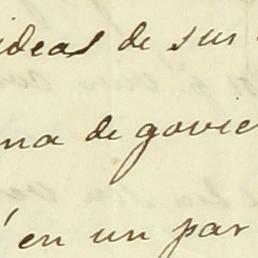 ideas de sus
na de govie
en un par